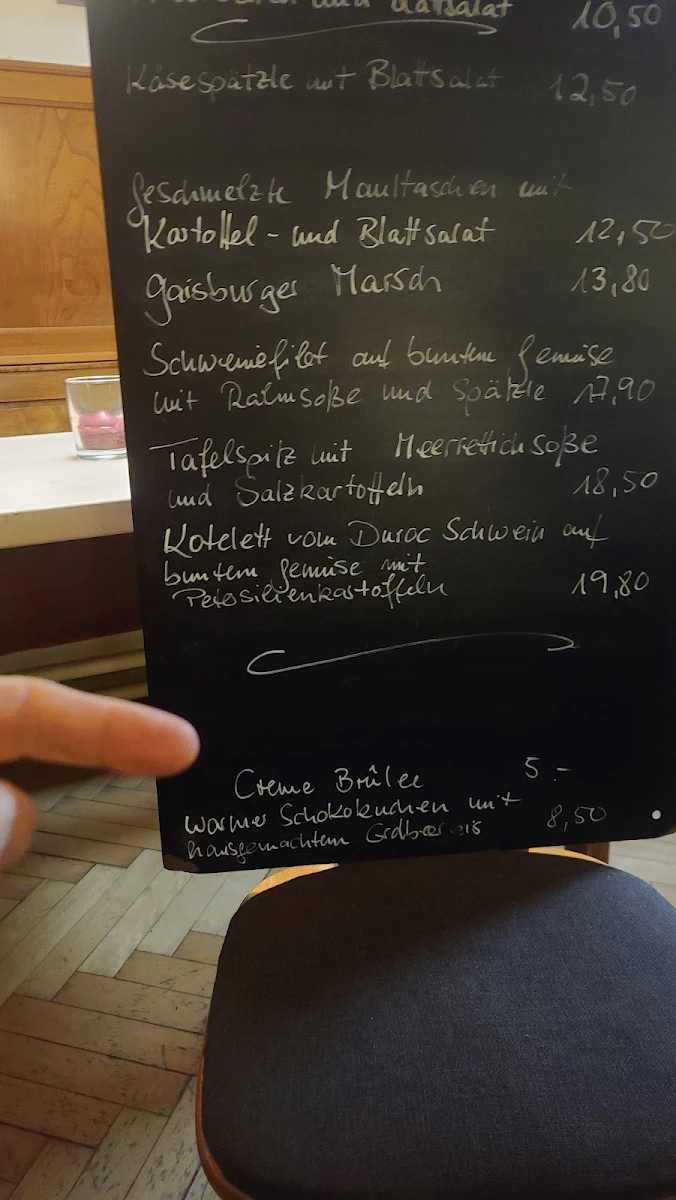 und Blattsalat 10,50
Käsespätzle mit Blattsalat 12,50
geschmelzte Maultaschen mit
Kartoffel- und Blattsalat 12,50
Gaisburger Marsch 13,80
Schweinefilet auf buntem Gemüse
mit Rahmsoße und Spätzle 17,90
Tafelspitz mit Meerrettichsoße
und Salzkartoffeln 18,50
Kotelett vom Duroc Schwein auf
buntem Gemüse mit
Petersilienkartoffeln 19,80
Creme Brûlee 5.-
warmer Schokokuchen mit 8,50
hausgemachtem Erdbeereis